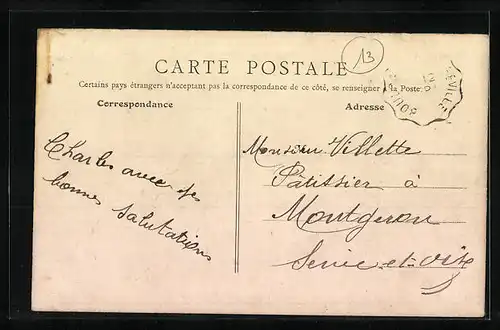 13
CARTE POSTALE
Certains pays étrangers n'acceptant pas la correspondance de ce côté, se renseigner à la Poste.
Correspondance
Adresse
Charles avec ses
bonnes salutations
Monsieur Villette
Pâtissier à
Montgeron
Seine-et-Oise